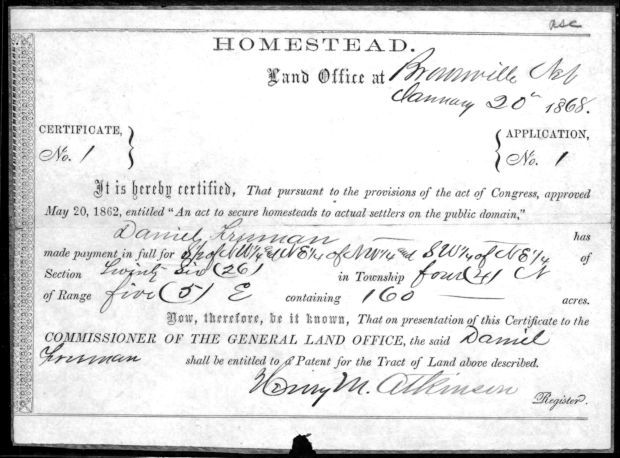 asc
HOMESTEAD.
Land Office at Brownville Neb
January 20th 1868.
CERTIFICATE, No. 1
APPLICATION, No. 1
It is hereby certified, That pursuant to the provisions of the act of Congress, approved
May 20, 1862, entitled "An act to secure homesteads to actual settlers on the public domain,"
Daniel Freeman has
made payment in full for S½ of NW¼ & NE¼ of NW¼ and SW¼ of NE¼ of
Section twenty six (26) in Township four (4) N
of Range five (5) E containing 160 acres.
Now, therefore, be it known, That on presentation of this Certificate to the
COMMISSIONER OF THE GENERAL LAND OFFICE, the said Daniel
Freeman shall be entitled to a Patent for the Tract of Land above described.
Henry M. Atkinson
Register.